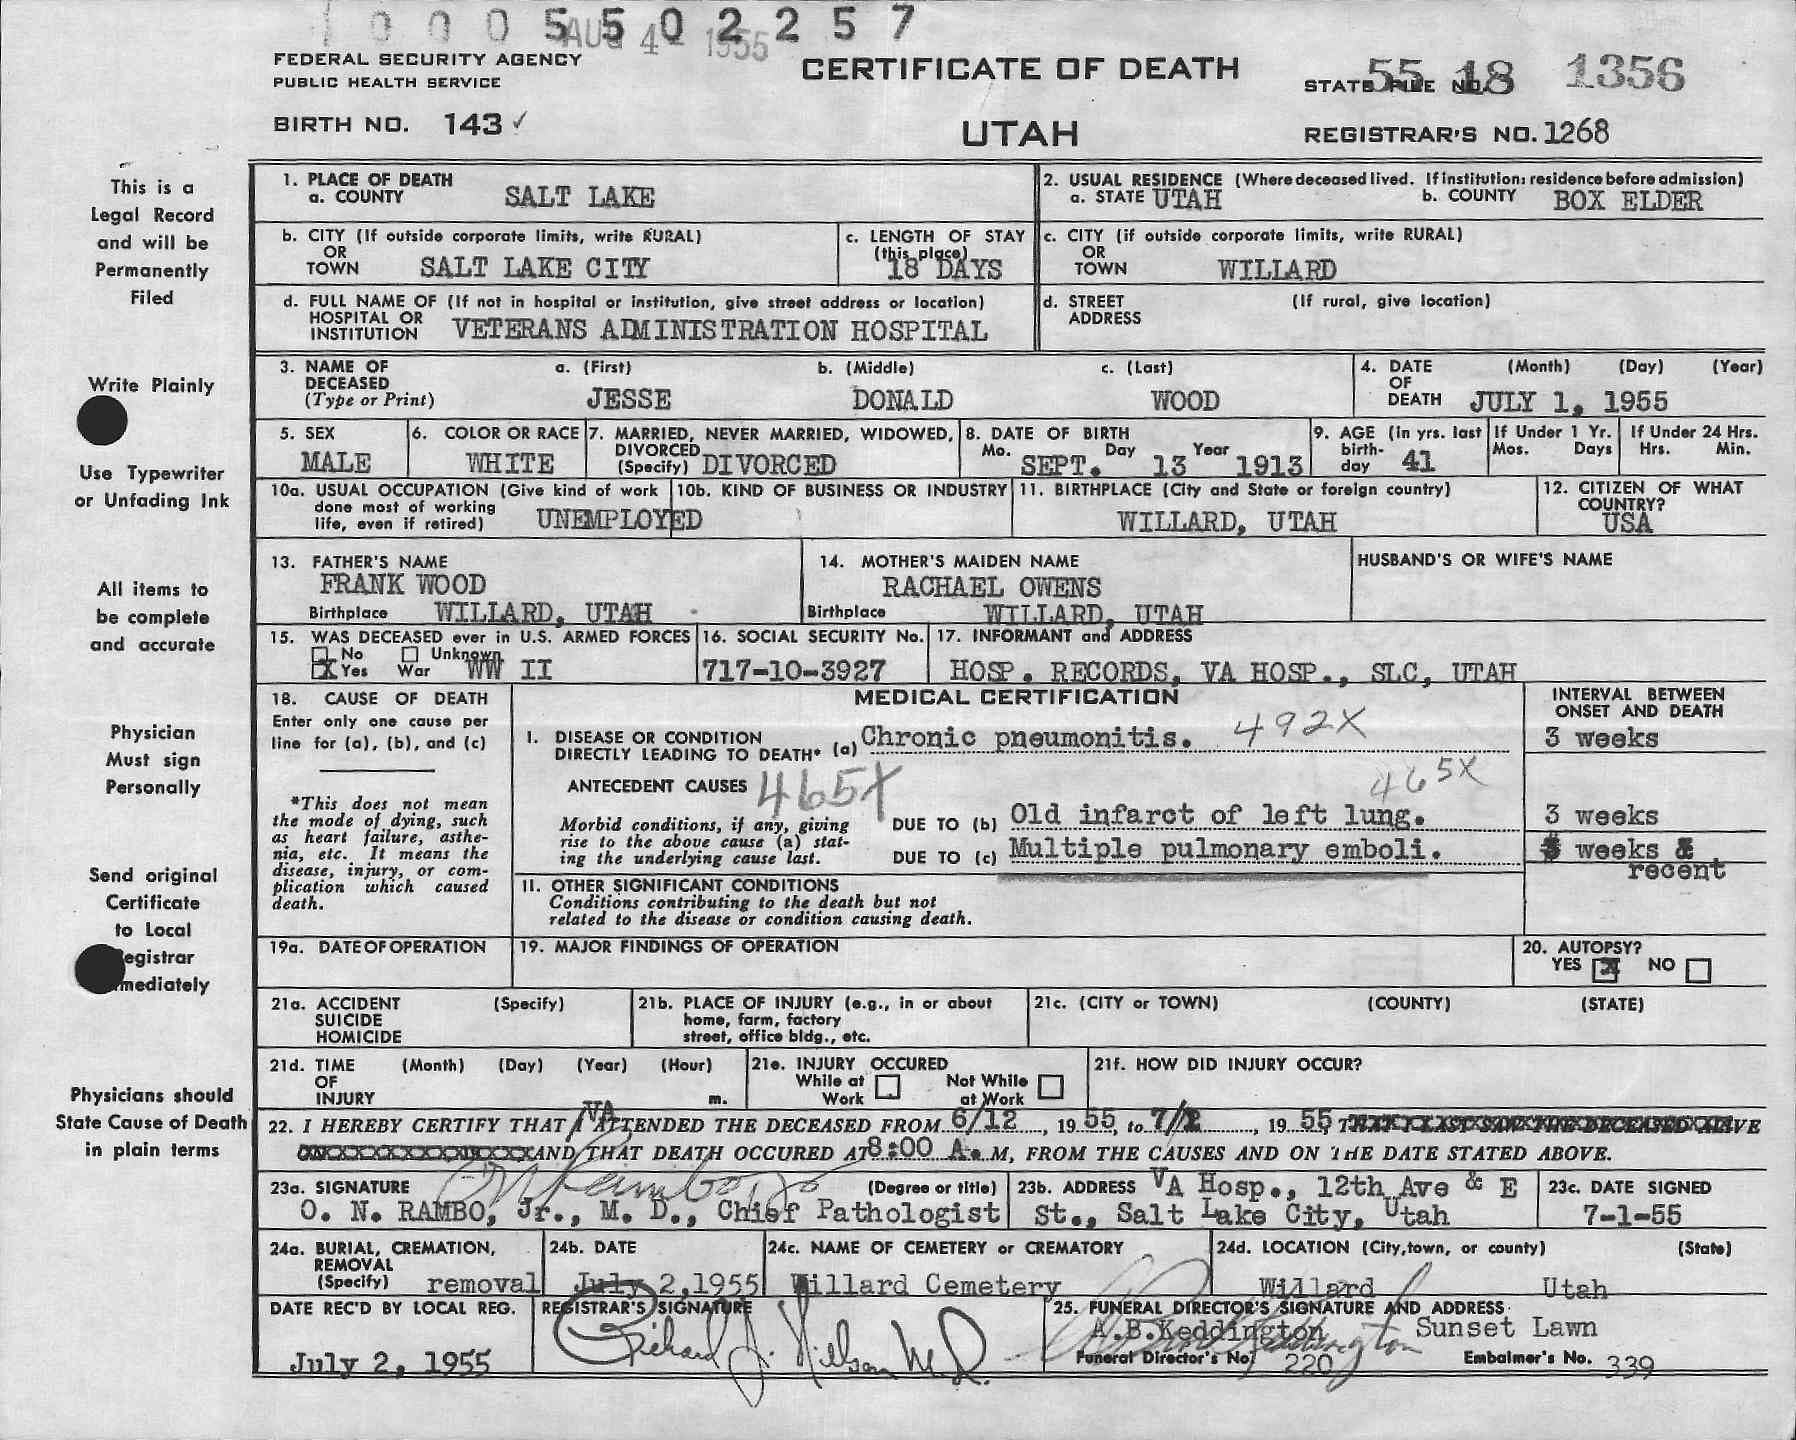 1 0 0 0 5 5 0 2 2 5 7
AUG 4 - 1955
FEDERAL SECURITY AGENCY
PUBLIC HEALTH SERVICE
CERTIFICATE OF DEATH
STATE FILE NO. 55 18 1356
BIRTH NO. 143 ✓
UTAH
REGISTRAR'S NO. 1268
This is a
Legal Record
and will be
Permanently
Filed
Write Plainly
Use Typewriter
or Unfading Ink
All items to
be complete
and accurate
Physician
Must sign
Personally
Send original
Certificate
to Local
egistrar
mediately
Physicians should
State Cause of Death
in plain terms
1. PLACE OF DEATH
a. COUNTY SALT LAKE
2. USUAL RESIDENCE (Where deceased lived. If institution: residence before admission)
a. STATE UTAH b. COUNTY BOX ELDER
b. CITY (If outside corporate limits, write RURAL)
OR
TOWN SALT LAKE CITY
c. LENGTH OF STAY
(this place)
18 DAYS
c. CITY (if outside corporate limits, write RURAL)
OR
TOWN WILLARD
d. FULL NAME OF (If not in hospital or institution, give street address or location)
HOSPITAL OR
INSTITUTION VETERANS ADMINISTRATION HOSPITAL
d. STREET (If rural, give location)
ADDRESS
3. NAME OF a. (First) b. (Middle) c. (Last)
DECEASED
(Type or Print) JESSE DONALD WOOD
4. DATE (Month) (Day) (Year)
OF
DEATH JULY 1, 1955
5. SEX
MALE
6. COLOR OR RACE
WHITE
7. MARRIED, NEVER MARRIED, WIDOWED,
DIVORCED
(Specify) DIVORCED
8. DATE OF BIRTH
Mo. Day Year
SEPT. 13 1913
9. AGE (in yrs. last
birth-
day 41
If Under 1 Yr.
Mos. Days
If Under 24 Hrs.
Hrs. Min.
10a. USUAL OCCUPATION (Give kind of work
done most of working
life, even if retired) UNEMPLOYED
10b. KIND OF BUSINESS OR INDUSTRY
11. BIRTHPLACE (City and State or foreign country)
WILLARD, UTAH
12. CITIZEN OF WHAT
COUNTRY?
USA
13. FATHER'S NAME
FRANK WOOD
Birthplace WILLARD, UTAH
14. MOTHER'S MAIDEN NAME
RACHAEL OWENS
Birthplace WILLARD, UTAH
HUSBAND'S OR WIFE'S NAME
15. WAS DECEASED ever in U.S. ARMED FORCES
No Unknown
X Yes War WW II
16. SOCIAL SECURITY No.
717-10-3927
17. INFORMANT and ADDRESS
HOSP. RECORDS, VA HOSP., SLC, UTAH
18. CAUSE OF DEATH
Enter only one cause per
line for (a), (b), and (c)
*This does not mean
the mode of dying, such
as heart failure, asthe-
nia, etc. It means the
disease, injury, or com-
plication which caused
death.
MEDICAL CERTIFICATION
I. DISEASE OR CONDITION
DIRECTLY LEADING TO DEATH* (a) Chronic pneumonitis. 492X
ANTECEDENT CAUSES 465X 465X
Morbid conditions, if any, giving
rise to the above cause (a) stat-
ing the underlying cause last.
DUE TO (b) Old infarct of left lung.
DUE TO (c) Multiple pulmonary emboli.
INTERVAL BETWEEN
ONSET AND DEATH
3 weeks
3 weeks
weeks &
recent
II. OTHER SIGNIFICANT CONDITIONS
Conditions contributing to the death but not
related to the disease or condition causing death.
19a. DATE OF OPERATION
19. MAJOR FINDINGS OF OPERATION
20. AUTOPSY?
YES X NO
21a. ACCIDENT (Specify)
SUICIDE
HOMICIDE
21b. PLACE OF INJURY (e.g., in or about
home, farm, factory
street, office bldg., etc.
21c. (CITY or TOWN) (COUNTY) (STATE)
21d. TIME (Month) (Day) (Year) (Hour)
OF
INJURY m.
21e. INJURY OCCURED
While at Not While
Work at Work
21f. HOW DID INJURY OCCUR?
22. I HEREBY CERTIFY THAT I VA ATTENDED THE DECEASED FROM 6/12, 1955, to 7/1, 1955, THAT I LAST SAW THE DECEASED ALIVE
ON AND THAT DEATH OCCURED AT 8:00 A.M, FROM THE CAUSES AND ON THE DATE STATED ABOVE.
23a. SIGNATURE (Degree or title)
O N Rambo, Jr
O. N. RAMBO, Jr., M. D., Chief Pathologist
23b. ADDRESS VA Hosp., 12th Ave & E
St., Salt Lake City, Utah
23c. DATE SIGNED
7-1-55
24a. BURIAL, CREMATION,
REMOVAL
(Specify) removal
24b. DATE
July 2,1955
24c. NAME OF CEMETERY or CREMATORY
Willard Cemetery
24d. LOCATION (City,town, or county) (State)
Willard Utah
DATE REC'D BY LOCAL REG.
July 2, 1955
REGISTRAR'S SIGNATURE
Richard J. Nilson M.D.
25. FUNERAL DIRECTOR'S SIGNATURE AND ADDRESS
A.B.Keddington Sunset Lawn
Funeral Director's No. 220 Embalmer's No. 339